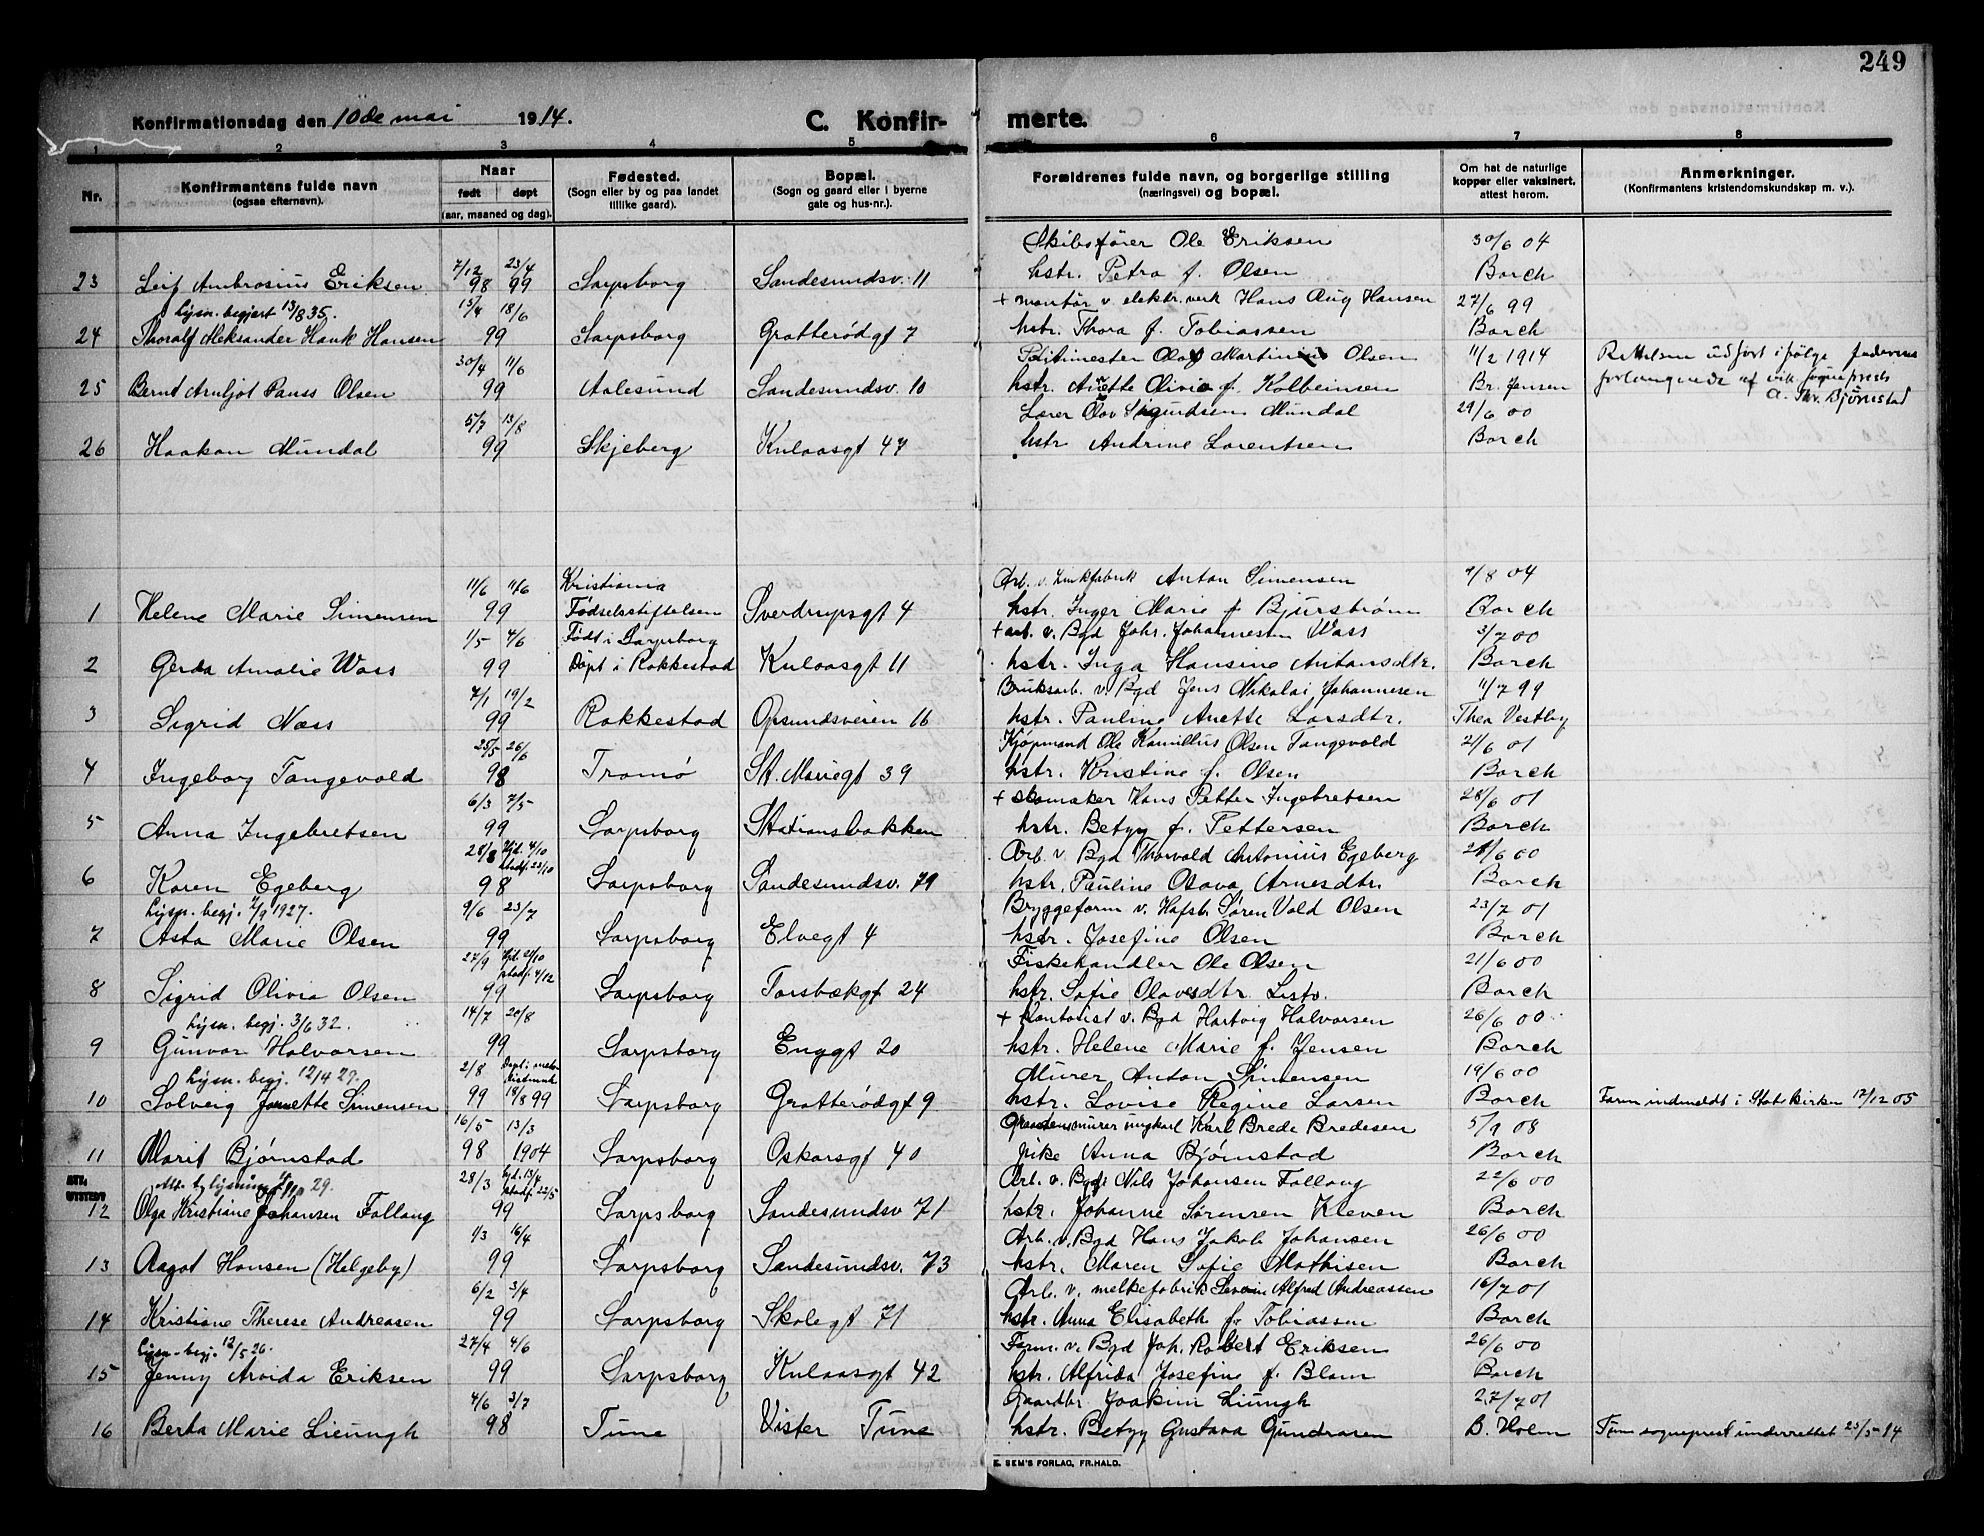 249
Konfirmationsdag den 10de mai 1914.
C. Konfirmerte.
1 2 3 4 5 6 7 8
Nr.
Konfirmantens fulde navn
(ogsaa efternavn).
Naar
født døpt
(aar, maaned og dag).
Fødested.
(Sogn eller by og paa landet
tillike gaard).
Bopæl.
(Sogn og gaard eller i byerne
gate og hus-nr.).
Forældrenes fulde navn, og borgerlige stilling
(næringsvei) og bopæl.
Om hat de naturlige
kopper eller vaksinert,
attest herom.
Anmerkninger.
(Konfirmantens kristendomskundskap m. v.).
7/12 23/4 Skibsfører Ole Eriksen 30/6 04
23 Leif Ambrosius Eriksen 98 99 Sarpsborg Sandesundsv. 11 hstr. Petra f. Olsen Borch
Lysn. begjært 13/8 35. 15/4 18/6 + montør v. elektr. verk Hans Aug Hansen 27/6 99
24 Thoralf Aleksander Hauk Hansen 99 Sarpsborg Grotterødgt 7 hstr. Thora f. Tobiassen Borch
30/4 11/6 Politimester Olaf Martinius Olsen 11/2 1914 Rettelsen utført ifølge faderens
25 Bernt Arnljot Pauss Olsen 99 Aalesund Sandesundsv. 10 hstr. Anette Olivia f. Kolbeinsen Br. Jensen forlangende af vik. sogneprest
A. Thv. Bjørnstad
5/7 13/8 Lærer Olav Sigurdsen Mundal 29/6 00
26 Haakon Mundal 99 Skjeberg Kulaasgt 47 hstr Andrine Lorentsen Borch
11/6 11/6 Kristiania Arb. v. Zinkfabrik Anton Simensen 9/8 04
1 Helene Marie Simensen 99 Fødselsstiftelsen Sverdrupsgt 4 hstr. Inger Marie f Bjurstrøm Borch
1/5 4/6 Født i Sarpsborg + arb. v. Bgd Johs. Johannesen Wass 3/7 00
2 Gerda Amalie Wass 99 Døpt i Rokkestad Kulaasgt 11 hstr. Inga Hansine Antonsdtr. Borch
7/1 19/2 Bruksarb. v. Bgd Jens Nikolai Johannesen 11/7 99
3 Sigrid Næss 99 Rakkestad Opsundsveien 16 hstr. Pauline Anette Larsdtr. Thea Vestby
25/5 26/6 Kjøpmand Ole Kamillus Olsen Tangevold 21/6 01
4 Ingeborg Tangevold 98 Tromø St. Mariegt 39 hstr. Kristine f. Olsen Borch
6/3 7/5 + skomaker Hans Petter Ingebretsen 28/6 01
5 Anna Ingebretsen 99 Sarpsborg Stationsbakken hstr. Betzy f. Pettersen Borch
28/8 Hjd. 4/10 Arb. v. Bgd Thorvald Antonius Egeberg 21/6 00
stadf. 23/10
6 Karen Egeberg 98 Sarpsborg Sandesundsv. 79 hstr. Pauline Osava Arnesdtr. Borch
Lysn. begj. 2/9 1927. 9/6 23/7 Bryggeform v. Hafsl. Søren Vold Olsen 23/7 01
7 Asta Marie Olsen 99 Sarpsborg Elvegt 4 hstr. Josefine Olsen Borch
27/9 Hjd. 21/10 Fiskehandler Ole Olsen 21/6 00
stadf. 4/12
8 Sigrid Olivia Olsen 99 Sarpsborg Torsbækgt 24 hstr. Sofie Olavesdtr. Listv. Borch
Lysn. begj. 3/6 32. 14/7 20/8 + kontorist v. Bgd Hartvig Halvorsen 26/6 00
9 Gunvor Halvorsen 99 Sarpsborg Enggt 20 hstr. Helene Marie f. Jensen Borch
Lysn. begj. 12/4 29. 2/8 Døpt i metodistmenh. Murer Anton Simensen 19/6 00
10 Solveig Jeanette Simensen 99 18/8 99 Sarpsborg Grotterødgt 9 hstr. Lovise Regine Larsen Borch Faren indmeldt i Statskirken 12/12 05
16/5 13/3 Graastensmurer ungkarl Karl Brede Bredesen 5/9 08
11 Marit Bjørnstad 98 1904 Sarpsborg Oskarsgt 40 pike Anna Bjørnstad Borch
ATT. UTSTEDT 28/3 hjd. 13/4 Arb. v. Bgd Nils Johansen Follaug 22/6 00
stadf. 22/5
12 Olga Kristiane Johansen Follaug 99 Sarpsborg Sandesundsv 71 hstr. Johanne Sørensen Kleven Borch
1/3 16/4 Arb. v. Bgd Hans Jakob Johansen 26/6 00
13 Aagot Hansen (Helgeby) 99 Sarpsborg Sandesundsv. 73 hstr. Maren Sofie Mathisen Borch
6/2 3/4 Arb. v. melkefabrik Severin Alfred Andreassen 16/7 01
14 Kristiane Therese Andreasen 99 Sarpsborg Skolegt 71 hstr. Anna Elisabeth f. Tobiassen Borch
Lysn. begj. 12/5 26. 27/4 4/6 Form. v. Bgd Joh. Robert Eriksen 26/6 00
15 Jenny Arvida Eriksen 99 Sarpsborg Kulaasgt 42 hstr. Alfrida Josefine f. Blom Borch
4/6 3/7 Gaardbr. Joakim Liungh 27/7 01
16 Berta Marie Lieungh 98 Tune Vister Tune hstr. Betzy Gustava Gundrosen B. Holm Tune sogneprest underrettet 25/5-14
E. SEM'S FORLAG, FR.HALD.